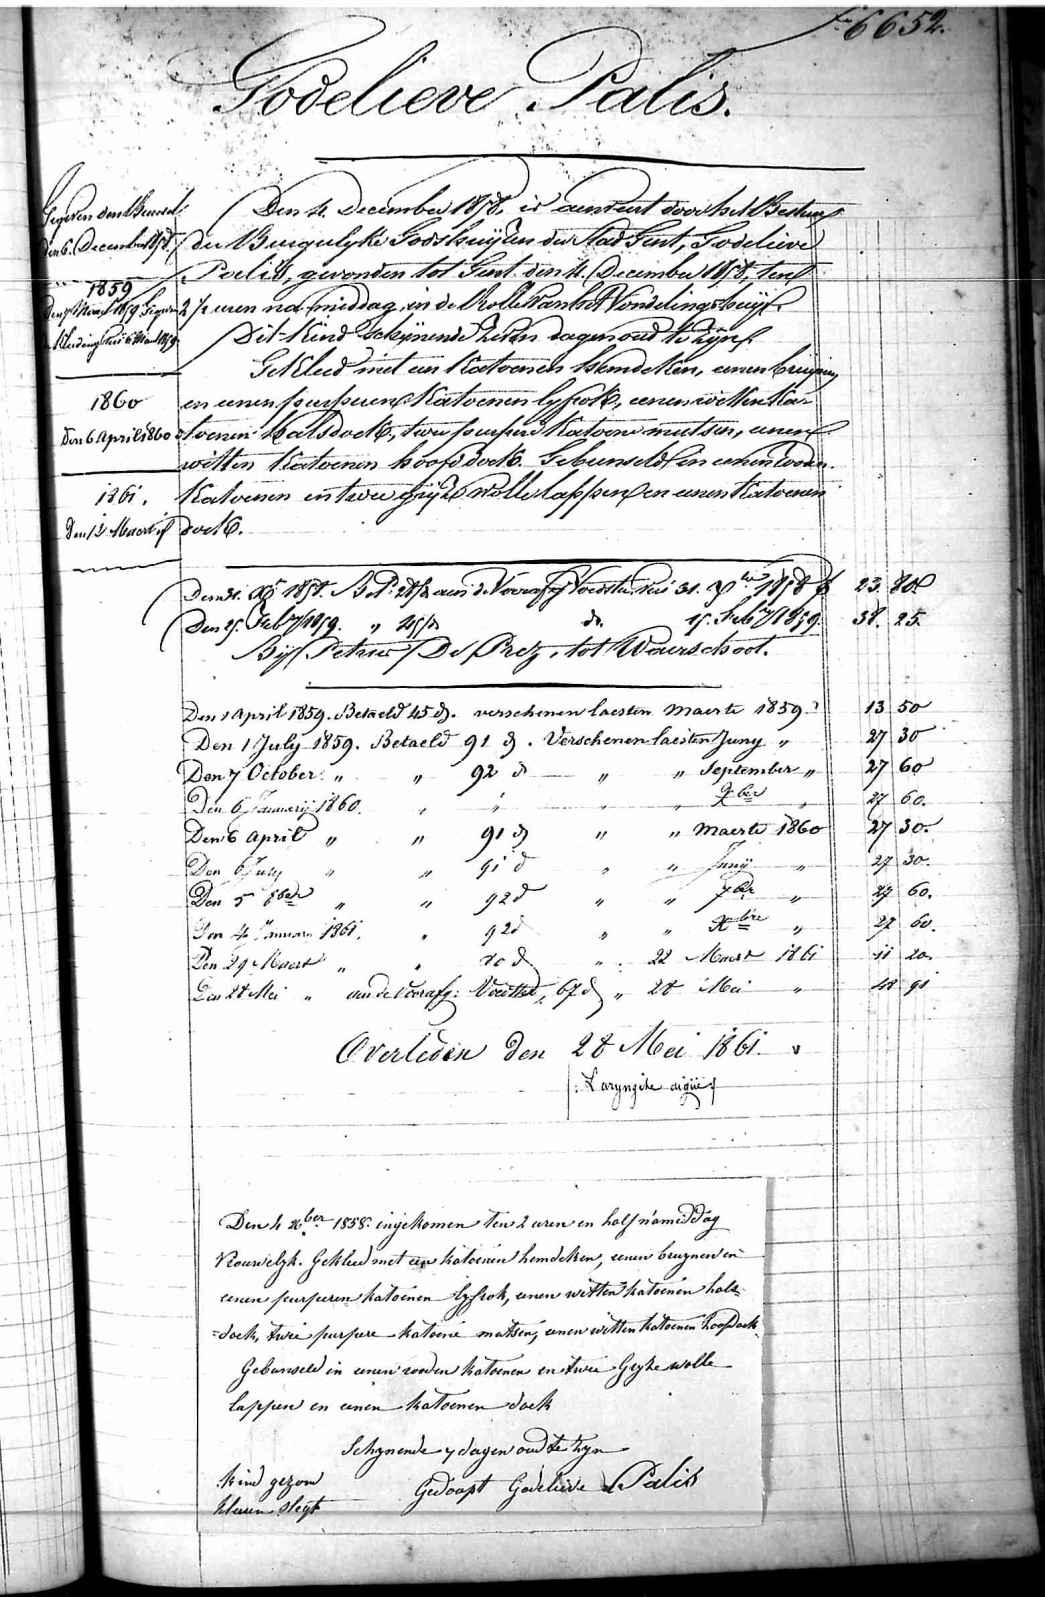 Fo 6652.
Godelieve Palis.
Gegeven den Bundel
den 6. December 1858.
1859
1860
Den 6 April 1860
1861.
Den 12 Maert
Den 4. December 1858. is aenveert door het Bestuer
der Burgerlyke Godshuyzen der Stad Gent, Godelieve
Palis, gevonden tot Gent den 4. December 1858, ten
2 ½ uren na middag, in de Rolle van het Vondelingshuys.
Dit Kind schijnende zeven dagen oud te zijn.
Gekleed met een Katoenen hemdeken, eenen bruynen
en eenen purperen Katoenen lyfrok, eenen witten Ka-
toenen Halsdoek, twee purpere Katoene mutsen, eenen
witten Katoenen hoofddoek. Gebunseld in eenen rooden
Katoenen en twee gryze wolle lappen en eenen Katoenen
doek.
Den 31. Xber 1858. 31. Xber 1858 23. 80
Den 15. Feby 1859. " 45 do. 15. Feby 1859. 38. 25.
Bij Petrus De Pretz, tot Waerschoot.
Den 1 April 1859. Betaeld 45 d. verschenen laesten Maerte 1859 13 50
Den 1 July 1859. Betaeld 91 d. Verschenen laesten Juny " 27 30
Den 7 October " " 92 d " " September " 27 60
Den 6 Januarij 1860. " " " " Xber " 27 60.
Den 6 April " " 91 d " " Maerte 1860 27 30.
Den 6 July " " 91 d " " Junij " 27 30.
Den 5 8ber " " 92 d " " 7ber " 27 60.
Den 4 Januari 1861. " 92 d " " Xbre " 27 60.
Den 29 Maert " " d " 22 Maert 1861 11 20.
Den 28 Mei " aen de Voorafg: Voedster, 67 d " 28 Mei " 48 91
Overleden den 28 Mei 1861.
Laryngite aigüe
Den 4 xber 1858. ingekomen ten 2 uren en half namiddag
Vrouwelyk. Gekleed met een katoenen hemdeken, eenen bruynen en
eenen purperen katoenen lyfrok, eenen witten katoenen hals-
=doek, twee purpere katoene mutsen, eenen witten katoenen hoofdoek.
Gebunseld in eenen rooden katoenen en twee Gryze wolle
lappen en eenen katoenen doek
Schynende 7 dagen oud te zyn
kind gezond
kleeren slegt
Gedoopt Godelieve Palis